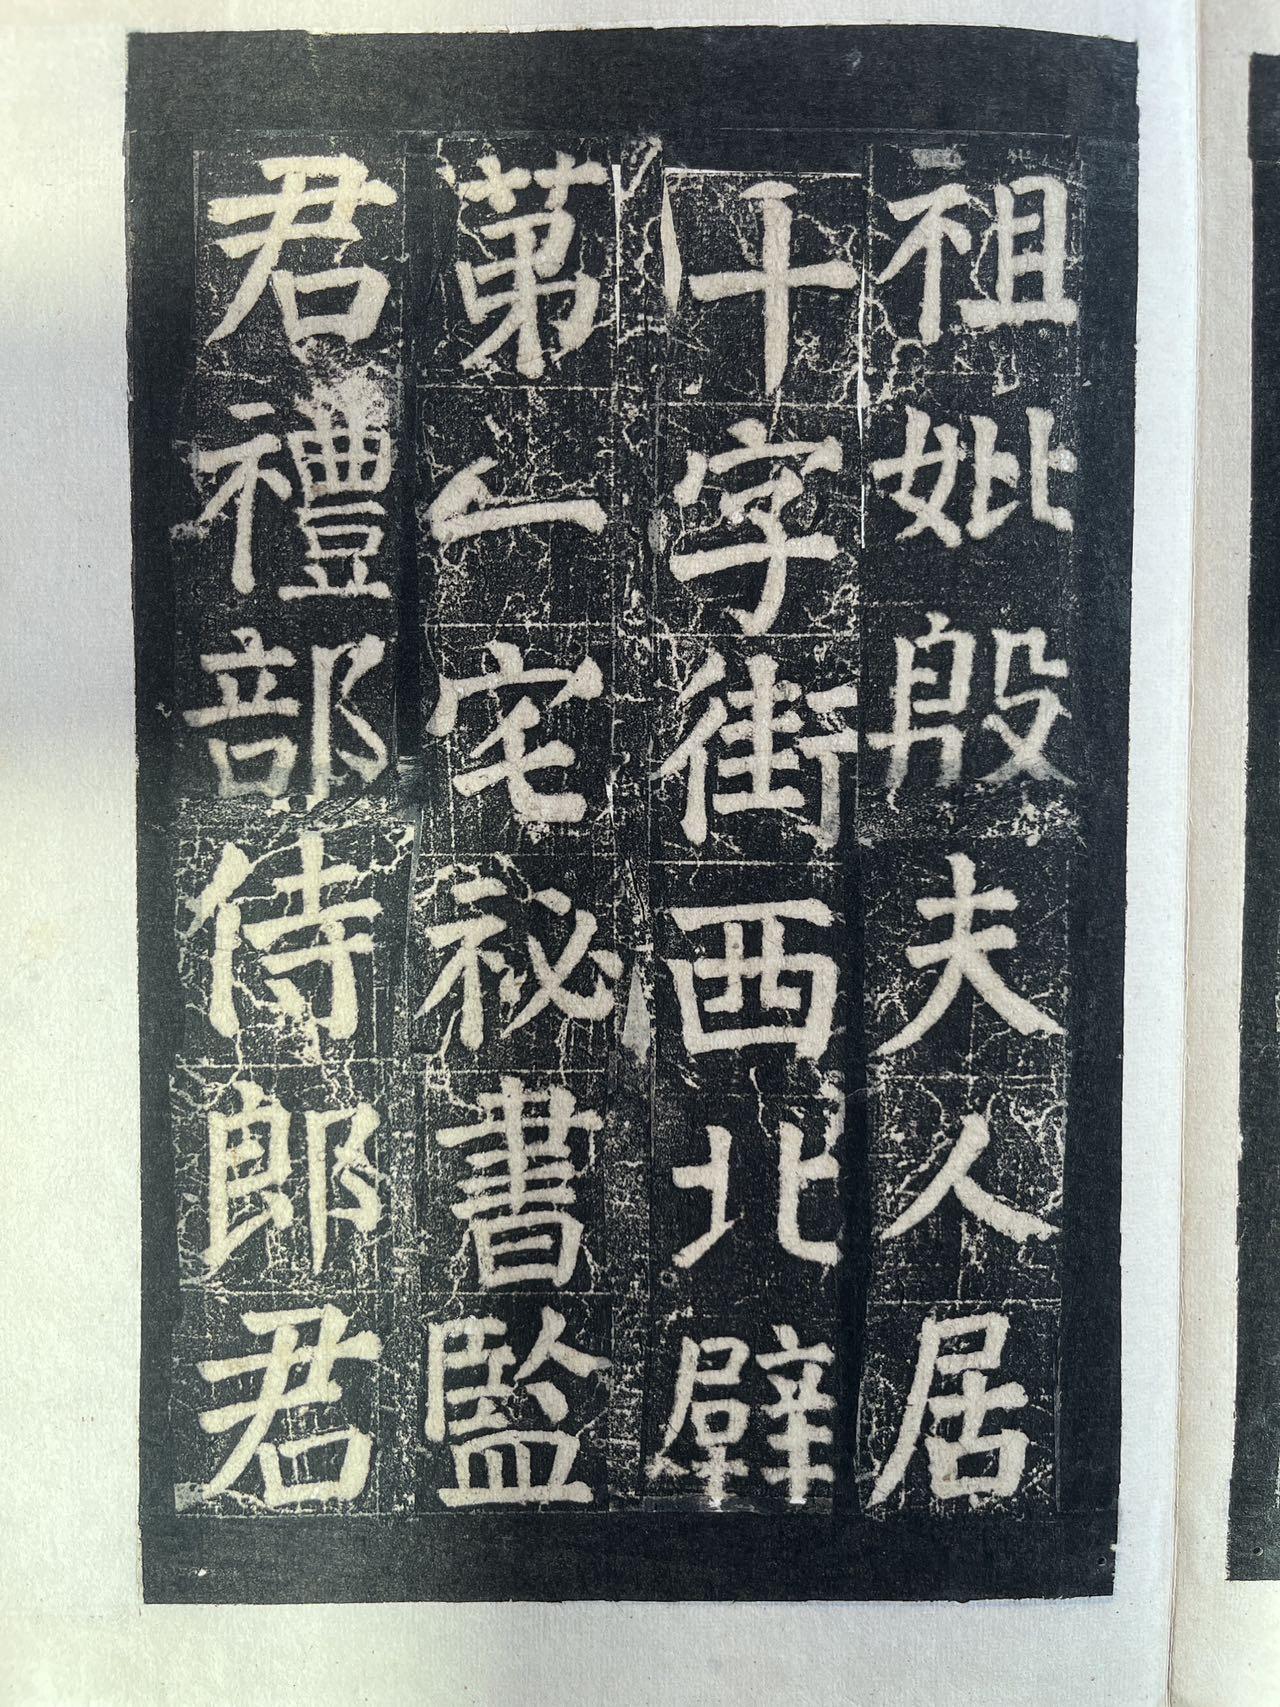 祖妣殷夫人居
十字街西北壁
苐一宅祕書監
君禮部侍郎君